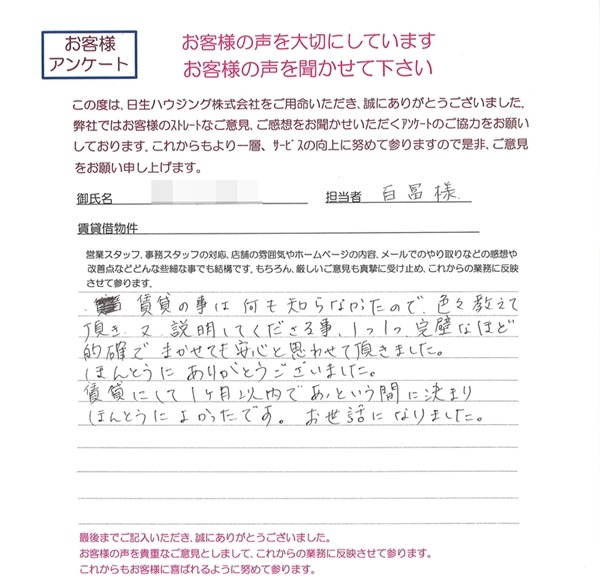 お客様
アンケート
お客様の声を大切にしています
お客様の声を聞かせて下さい
この度は、日生ハウジング株式会社をご用命いただき、誠にありがとうございました。
弊社ではお客様のストレートなご意見、ご感想をお聞かせいただくアンケートのご協力をお願い
しております。これからもより一層、サービスの向上に努めて参りますので是非、ご意見
をお願い申し上げます。
御氏名 担当者 百冨様
賃貸借物件
営業スタッフ、事務スタッフの対応、店舗の雰囲気やホームページの内容、メールでのやり取りなどの感想や
改善点などどんな些細な事でも結構です。もちろん、厳しいご意見も真摯に受け止め、これからの業務に反映
させて参ります。
賃貸の事は何も知らなかったので、色々教えて
頂き、又、説明してくださる事、1つ1つ、完璧なほど
的確でまかせても安心と思わせて頂きました。
ほんとうにありがとうございました。
賃貸にして1ヶ月以内であっという間に決まり
ほんとうによかったです。お世話になりました。
最後までご記入いただき、誠にありがとうございました。
お客様の声を貴重なご意見としまして、これからの業務に反映させて参ります。
これからもお客様に喜ばれるように努めて参ります。